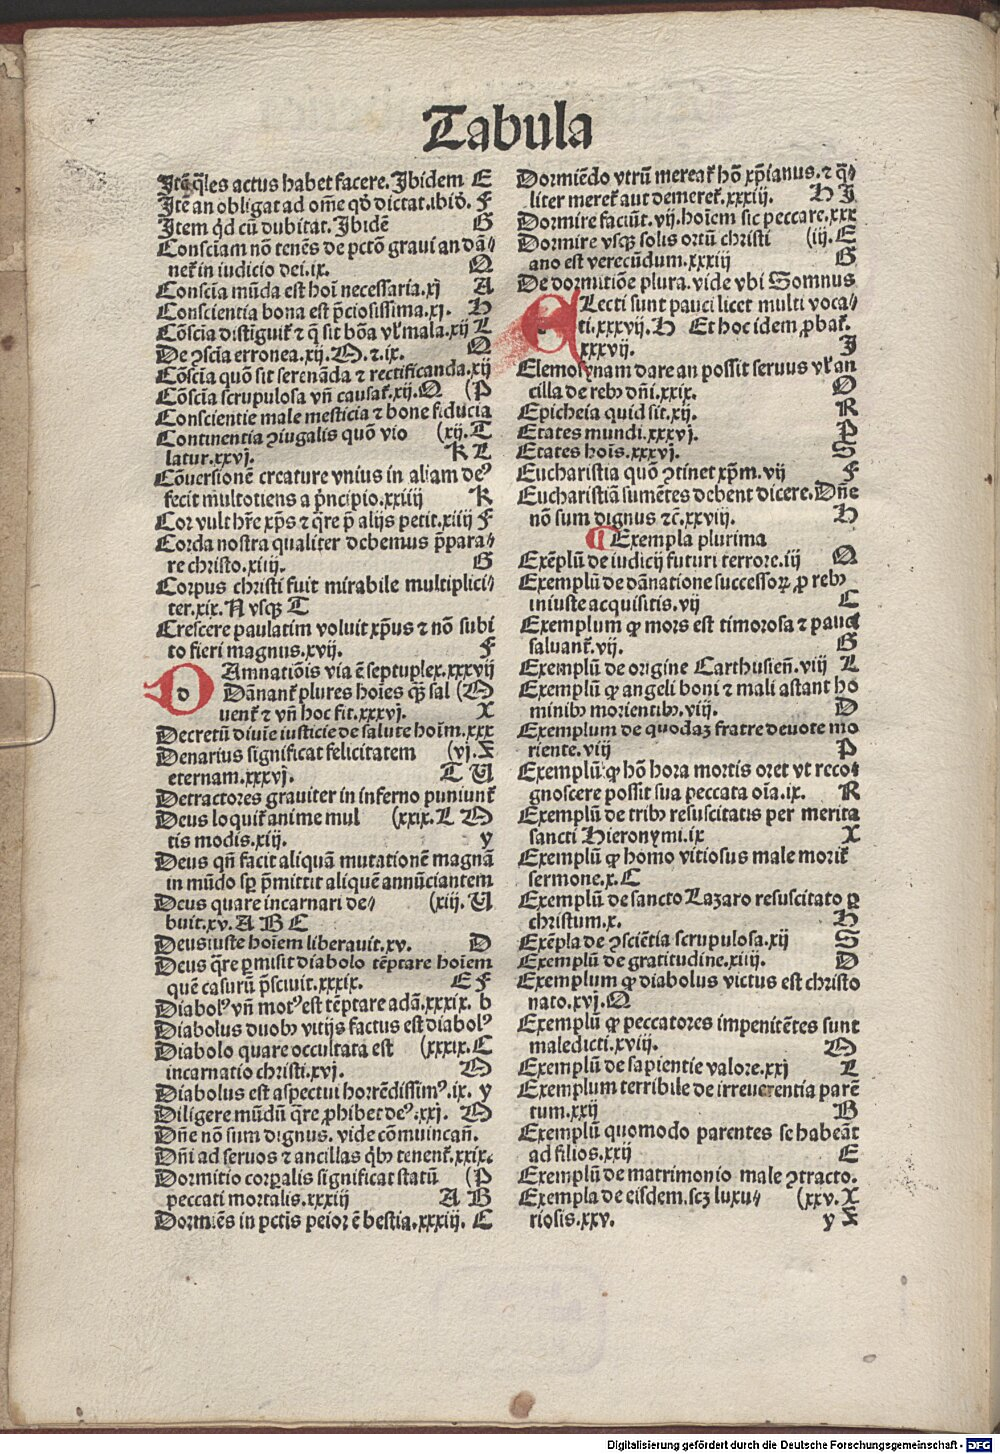 Tabula
Itē q̄les actus habet facere. Ibidem E
Itē an obligat ad om̄e qd̄ dictat. ibid̄. F
Item qd̄ cū dubitat. Ibidē G
Consciam nō tenēs de pctō graui an dā⸗
net᷑ in iudicio dei. ix. Q
Conscīa mūda est hoī necessaria. xj A
Conscientia bona est p̄ciosissima. xj. H
Cōscīa distiguit᷑ ⁊ q̄ sit bōa vl̓ mala. xij L
De ꝯscīa erronea. xij. M. ⁊. ix. Q
Cōscīa quō sit serenāda ⁊ rectificanda. xij
Cōscīa scrupulosa vn̄ causat᷑. xij. O (P
Conscientie male mesticia ⁊ bone fiducia
Continentia ꝯiugalis quō vio (xij. T
latur. xxvj. K L
Cōuersionē creature vnius in aliam de⁹
fecit multotiens a p̄ncipio. xxiiij K
Cor vult hr̄e xp̄s ⁊ q̄re p̄ alijs petit. xiiij F
Corda nostra qualiter debemus p̄para⸗
re christo. xiiij. G
Corpus christi fuit mirabile multiplici⸗
ter. xix. N vsqꝫ T
Crescere paulatim voluit xp̄us ⁊ nō subi
to fieri magnus. xvij. F
DAmnatiōis via ē septuplex. xxxvij
Dānant᷑ plures hoīes qꝫ sal (M
uent᷑ ⁊ vn̄ hoc fit. xxxvj. X
Decretū diuīe iusticie de salute hoīm. xxx
Denarius significat felicitatem (vj. Z
eternam. xxxvj. T U
Detractores grauiter in inferno puniunt᷑
Deus loquit᷑ anime mul (xxix. L M
tis modis. xiij. y
Deus qn̄ facit aliquā mutationē magnā
in mūdo sꝑ p̄mittit aliquē annūciantem
Deus quare incarnari de⸗ (xiij. U
buit. xv. A B C
Deus iuste hoīem liberauit. xv. D
Deus q̄re ꝑmisit diabolo tēptare hoīem
quē casurū p̄sciuit. xxxix. E F
Diabol⁹ vn̄ mot⁹ est tēptare adā. xxxix. b
Diabolus duobꝫ vitijs factus est diabol⁹
Diabolo quare occultata est (xxxix. C
incarnatio christi. xvj. M
Diabolus est aspectui horrēdissim⁹. ix. y
Diligere mūdū q̄re ꝓhibet de⁹. xxj. M
Dn̄e nō sum dignus. vide cōmuincan̄.
Dn̄i ad seruos ⁊ ancillas qͥbꝫ tenent᷑. xxix.
Dormitio corꝑalis significat statū (P
peccati mortalis. xxxiij A B
Dormiēs in pctīs peior ē bestia. xxxiij. C
Dormiēdo vtrū mereat᷑ hō xp̄ianus. ⁊ q̄⸗
liter meret᷑ aut demeret᷑. xxxiij. H I
Dormire faciūt. vij. hoīem sic peccare. xxx
Dormire vsqꝫ solis ortū christi (iij. E
ano est verecūdum. xxxiij G
De dormitiōe plura. vide vbi Somnus
ELecti sunt pauci licet multi voca⸗
ti. xxxvij. H Et hoc idem ꝓbat᷑.
xxxvij. I
Elemosynam dare an possit seruus vl̓ an
cilla de rebꝫ dn̄i. xxix. O
Epicheia quid sit. xij. R
Etates mundi. xxxvj. P
Etates hoīs. xxxvj. S
Eucharistia quō ꝯtinet xp̄m. vij F
Eucharistiā sumētes debent dicere. Dn̄e
nō sum dignus ⁊c̄. xxviij. H
¶ Exempla plurima
Exēplū de iudicij futuri terrore. iij Q
Exemplū de dānatione successoꝝ ꝓ rebꝫ
iniuste acquisitis. vij C
Exemplum ꝙ mors est timorosa ⁊ pauci
saluant᷑. vij. G
Exemplū de origine Carthusien̄. viij L
Exemplū ꝙ angeli boni ⁊ mali astant ho
minibꝫ morientibꝫ. viij. D
Exemplum de quodaꝫ fratre deuote mo
riente. viij P
Exemplū ꝙ hō hora mortis oret vt reco⸗
gnoscere possit sua peccata oīa. ix. R
Exemplū de tribꝫ resuscitatis per merita
sancti Hieronymi. ix X
Exemplū ꝙ homo vitiosus male morit᷑
sermone. x. C
Exemplū de sancto Lazaro resuscitato ꝑ
christum. x. H
Exēpla de ꝯsciētia scrupulosa. xij S
Exemplū de gratitudine. xiiij. D
Exemplum ꝙ diabolus victus est christo
nato. xvj. Q
Exemplū ꝙ peccatores impenitētes sunt
maledicti. xviij. M
Exemplū de sapientie valore. xxj L
Exemplum terribile de irreuerentia parē
tum. xxij B
Exemplū quomodo parentes se habeāt
ad filios. xxij E
Exemplū de matrimonio male ꝯtracto.
Exempla de eisdem. scꝫ luxu⸗ (xxv. X
riosis. xxv. y Z
Digitalisierung gefördert durch die Deutsche Forschungsgemeinschaft - DFG